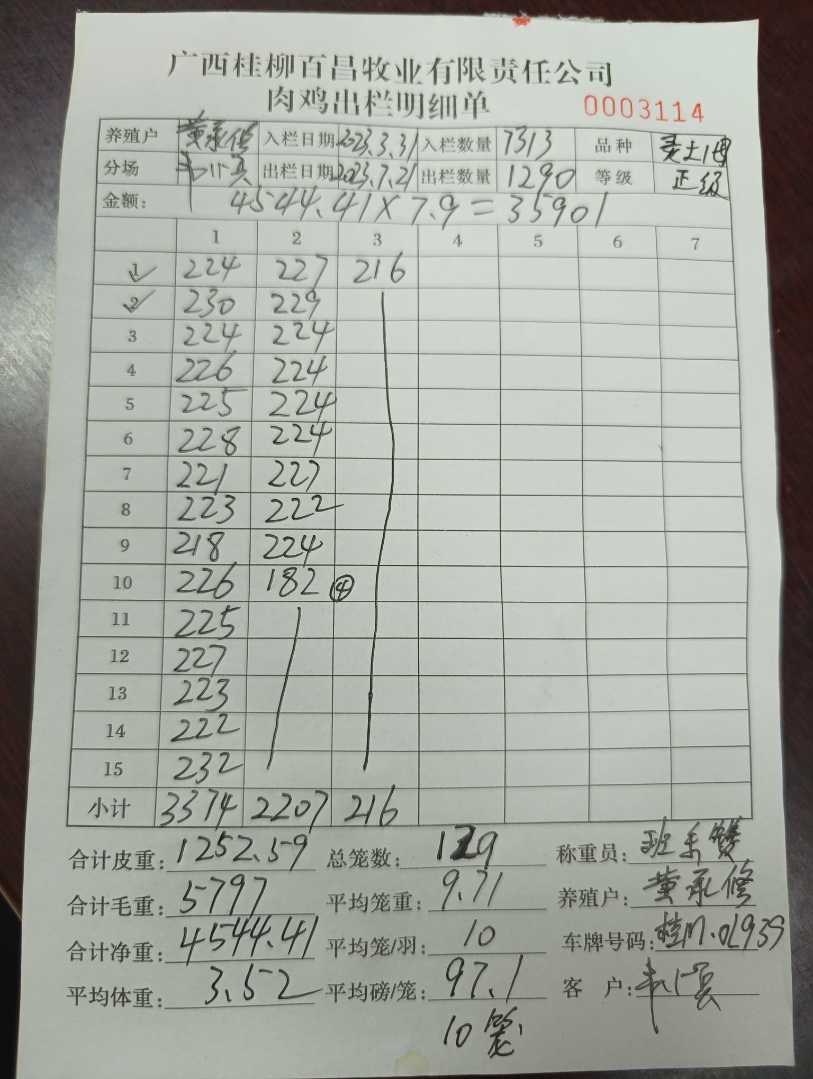 广西桂柳百昌牧业有限责任公司
肉鸡出栏明细单 0003114
养殖户 黄承修 入栏日期 2023.3.31 入栏数量 7313 品种
分场 出栏日期 2023.7.21 出栏数量 1290 等级 正级
金额: 4544.41×7.9=35901
1 2 3 4 5 6 7
1 224 227 216
2 230 229
3 224 224
4 226 224
5 225 224
6 228 224
7 221 227
8 223 222
9 218 224
10 226 182 ④
11 225
12 227
13 223
14 222
15 232
小计 3374 2207 216
合计皮重: 1252.59 总笼数: 129 称重员:
合计毛重: 5797 平均笼重: 9.71 养殖户: 黄承修
合计净重: 4544.41 平均笼/羽: 10 车牌号码:
平均体重: 3.52 平均磅/笼: 97.1 客 户:
10笼